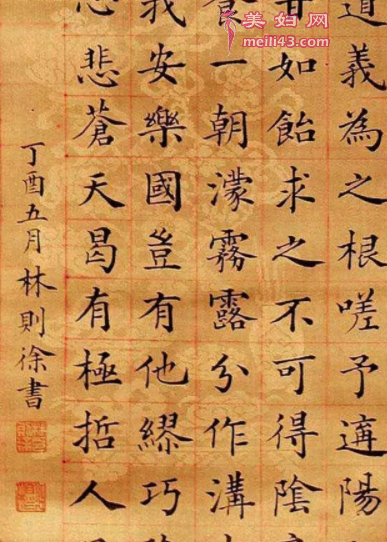 美妇网
meili43.com
道義為之根嗟予遘陽
甘如飴求之不可得陰
食一朝濛霧露分作溝
我安樂國豈有他繆巧
心悲蒼天曷有極哲人
丁酉五月林則徐書